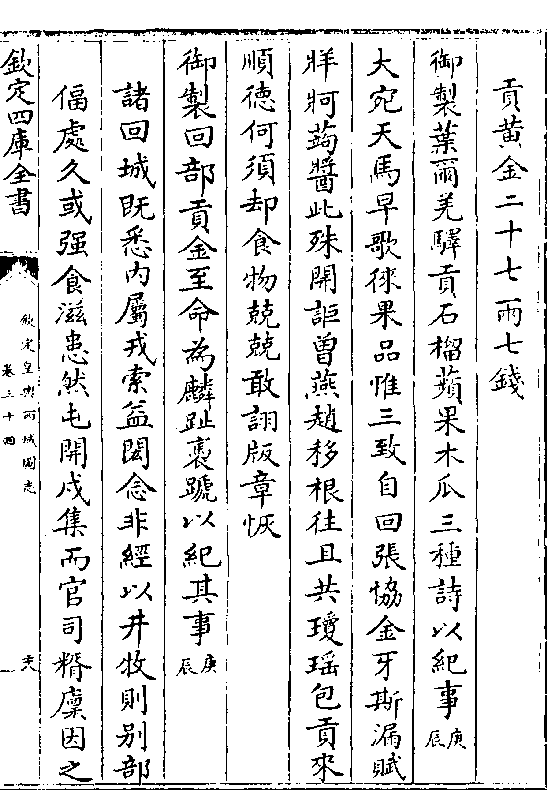 貢黃金二十七兩七錢
御製葉爾羌驛貢石榴蘋果木瓜三種詩以紀事庚辰
大宛天馬早歌徠果品惟三致自回張協金牙斯漏賦
牂牁蒟醬此殊開詎曽燕趙移根往且共瓊瑶包貢來
順德何須却食物兢兢敢詡版章恢
御製回部貢金至命為麟趾褭蹏以紀其事庚辰
諸回城既悉内屬戎索益闊念非經以井牧則别部
偪處久或强食滋患然屯開戍集而官司糈廩因之
欽定四庫全書
欽定皇輿西域圖志
卷三十四